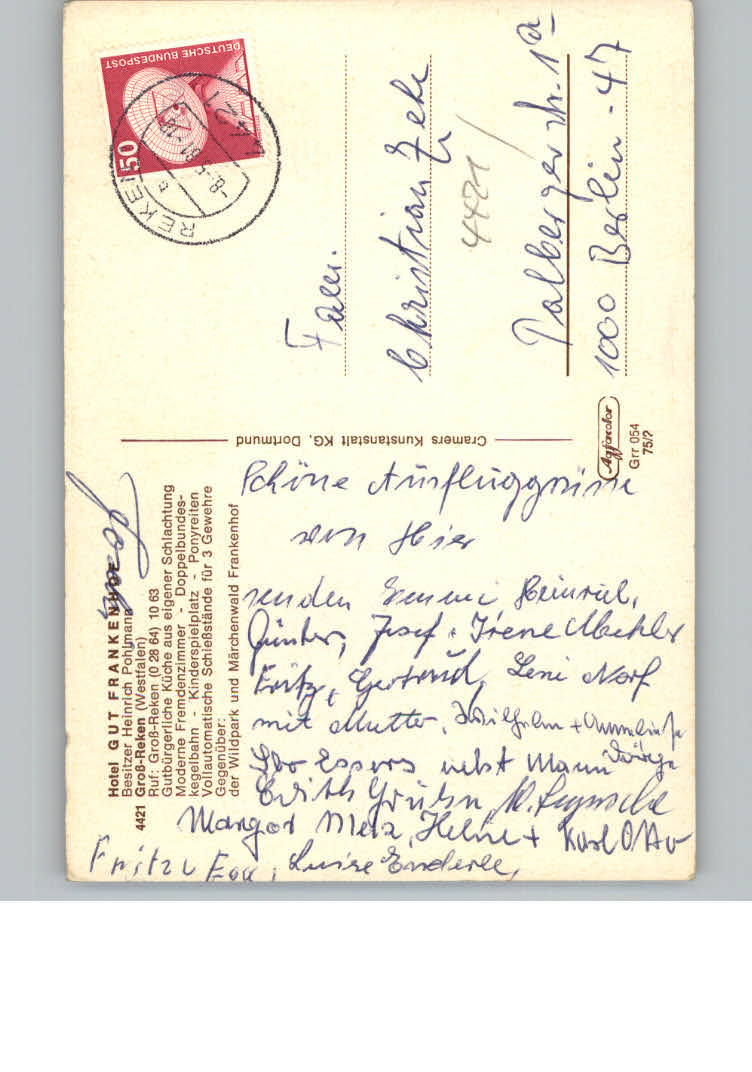 Hotel GUT FRANKENHOF
Besitzer Heinrich Pohlmann
4421 Groß-Reken (Westfalen)
Ruf: Groß-Reken (0 28 64) 10 63
Gutbürgerliche Küche aus eigener Schlachtung
Moderne Fremdenzimmer - Doppelbundes-
kegelbahn - Kinderspielplatz - Ponyreiten
Vollautomatische Schießstände für 3 Gewehre
Gegenüber:
der Wildpark und Märchenwald Frankenhof
Schöne Ausfluggrüsse
von Hier
senden Emmi Heinrich,
Günter, Josef + Irene
Fritz, Gertrud, Leni Norf
mit Mutter, Wilhelm +
nebst Mann
Edith
Margot Merx, Helne + Karl Otto
Fritz u Eva, Luise Enderle,
Cramers Kunstanstalt KG, Dortmund
Agfacolor
Grr 054
75/?
DEUTSCHE BUNDESPOST
50
REKEN
4421
-8.-5.81-10
a
Fam.
Christian Zehe
4421/
Palbergerstr. 1a
1000 Berlin - 47